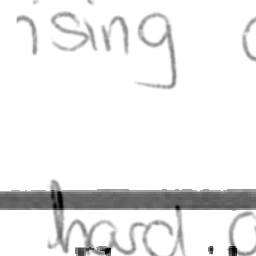 ising
hard